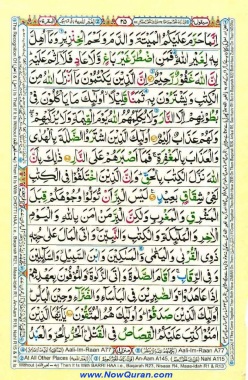 إِنَّمَا حَرَّمَ عَلَيْكُمُ الْمَيْتَةَ وَالدَّمَ وَلَحْمَ الْخِنْزِيْرِ وَمَآ اُهِلَّ
بِهٖ لِغَيْرِ اللّٰهِ فَمَنِ اضْطُرَّ غَيْرَ بَاغٍ وَّلَا عَادٍ فَلَآ اِثْمَ عَلَيْهِ
اِنَّ اللّٰهَ غَفُوْرٌ رَّحِيْمٌ اِنَّ الَّذِيْنَ يَكْتُمُوْنَ مَآ اَنْزَلَ اللّٰهُ مِنَ
الْكِتٰبِ وَيَشْتَرُوْنَ بِهٖ ثَمَنًا قَلِيْلًا اُولٰٓئِكَ مَا يَأْكُلُوْنَ فِيْ
بُطُوْنِهِمْ اِلَّا النَّارَ وَلَا يُكَلِّمُهُمُ اللّٰهُ يَوْمَ الْقِيٰمَةِ وَلَا يُزَكِّيْهِمْ
وَلَهُمْ عَذَابٌ اَلِيْمٌ اُولٰٓئِكَ الَّذِيْنَ اشْتَرَوُا الضَّلٰلَةَ بِالْهُدٰى
وَالْعَذَابَ بِالْمَغْفِرَةِ فَمَآ اَصْبَرَهُمْ عَلَى النَّارِ ذٰلِكَ بِاَنَّ
اللّٰهَ نَزَّلَ الْكِتٰبَ بِالْحَقِّ وَاِنَّ الَّذِيْنَ اخْتَلَفُوْا فِي الْكِتٰبِ
لَفِيْ شِقَاقٍۭ بَعِيْدٍ لَيْسَ الْبِرَّ اَنْ تُوَلُّوْا وُجُوْهَكُمْ قِبَلَ
الْمَشْرِقِ وَالْمَغْرِبِ وَلٰكِنَّ الْبِرَّ مَنْ اٰمَنَ بِاللّٰهِ وَالْيَوْمِ
الْاٰخِرِ وَالْمَلٰٓئِكَةِ وَالْكِتٰبِ وَالنَّبِيّٖنَ وَاٰتَى الْمَالَ عَلٰى حُبِّهٖ
ذَوِي الْقُرْبٰى وَالْيَتٰمٰى وَالْمَسٰكِيْنَ وَابْنَ السَّبِيْلِ وَالسَّآئِلِيْنَ
وَفِي الرِّقَابِ وَاَقَامَ الصَّلٰوةَ وَاٰتَى الزَّكٰوةَ وَالْمُوْفُوْنَ بِعَهْدِهِمْ
اِذَا عٰهَدُوْا وَالصّٰبِرِيْنَ فِي الْبَأْسَآءِ وَالضَّرَّآءِ وَحِيْنَ الْبَأْسِ
اُولٰٓئِكَ الَّذِيْنَ صَدَقُوْا وَاُولٰٓئِكَ هُمُ الْمُتَّقُوْنَ يٰٓاَيُّهَا الَّذِيْنَ
اٰمَنُوْا كُتِبَ عَلَيْكُمُ الْقِصَاصُ فِي الْقَتْلٰى اَلْحُرُّ بِالْحُرِّ وَالْعَبْدُ
www.NowQuran.com